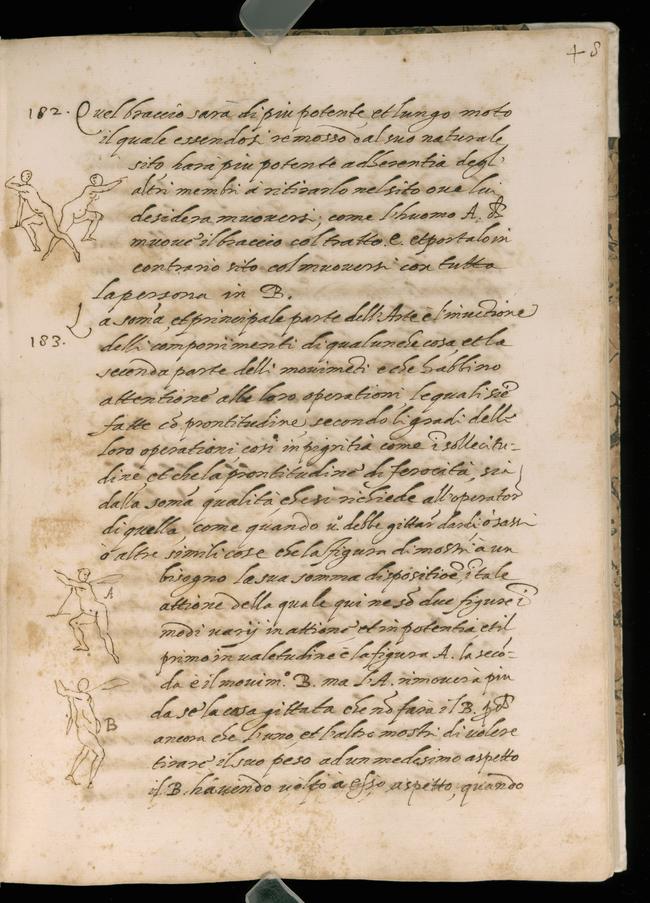 48
182. Quel braccio sarà di piu potente et lungo moto
il quale essendosi remosso dal suo naturale
sito harà piu potente adherentia degl'
altri membri a ritirarlo nel sito oue lui
desidera muouersi, come l'huomo A. che
muoue il braccio col tratto. e. et portalo in
contrario sito col muouersi con tutta
la persona in B.
183. La soma et principale parte dell'Arte è l'inuetione
delli componimenti di qualunche cosa et la
seconda parte delli mouimeti e che habbino
attentione alle loro operationi le quali sie
fatte co prontitudine secondo li gradi delle
loro operationi così in pigritia come i sollecitu-
dine et che la prontitudine di ferocità, sia
dalla soma qualità che si richiede all'operator
di quella, come quando u. debbe gittar dardi o sassi
o altre simili cose che la figura dimostri a un
bisogno la sua somma dispositioe i tale
attione della quale qui ne so due figure i
modi varij in attione et in potentia et il
primo in ualetudine è la figura A. la seco-
da è il mouim.o B. ma l'A. rimouerà piu
da se la cosa gittata che no farà il B. p che
ancora che l'uno et l'altro mostri di uolere
tirare il suo peso ad un medesimo aspetto
il B. hauendo uolto a esso aspetto, quando
A
B